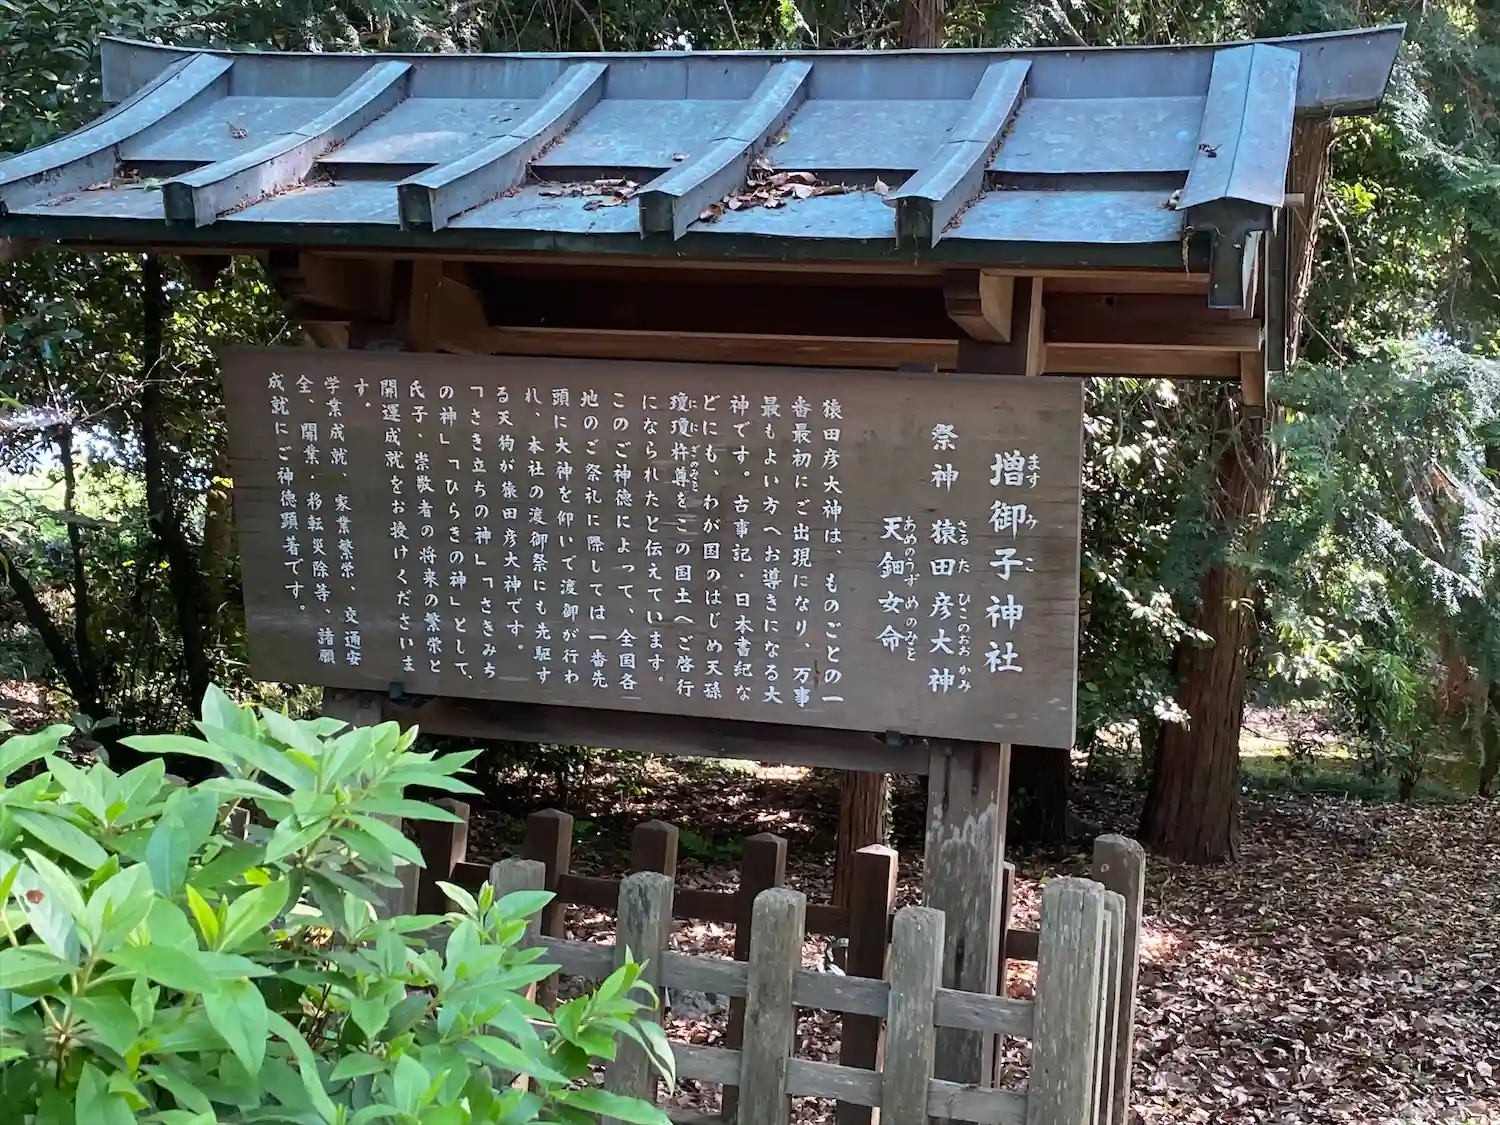 増御子神社
ます み こ
祭神 猿田彦大神
さるた ひこのおおかみ
天鈿女命
あめのうずめのみこと
猿田彦大神は、ものごとの一
番最初にご出現になり、万事
最もよい方へお導きになる大
神です。古事記・日本書紀な
どにも、わが国のはじめ天孫
瓊瓊杵尊をこの国土へご啓行
ににぎのみこと
になられたと伝えています。
このご神徳によって、全国各
地のご祭礼に際しては一番先
頭に大神を仰いで渡御が行わ
れ、本社の渡御祭にも先駆す
る天狗が猿田彦大神です。
「さき立ちの神」「さきみち
の神」「ひらきの神」として、
氏子、崇敬者の将来の繁栄と
開運成就をお授けくださいま
す。
学業成就、家業繁栄、交通安
全、開業・移転災除等、諸願
成就にご神徳顕著です。